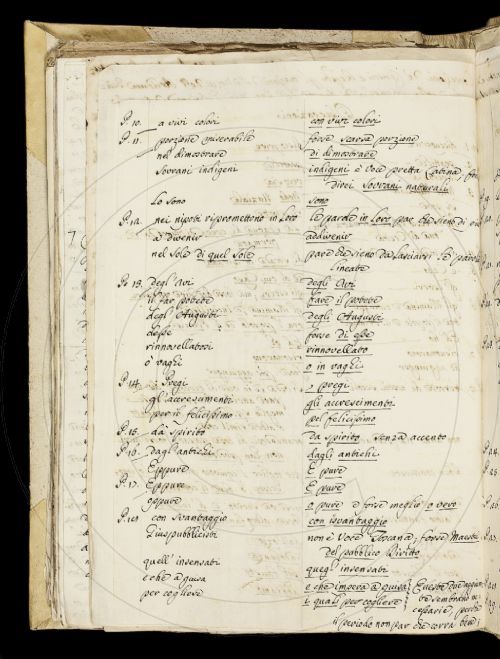 P. 10. a vivi colori con vivi colori
P. 11. porzione miserabile forse scarsa porzione
nel dimostrare di dimostrare
Sovrani indigeni indigeni è voce pretta Latina,
direi Sovrani naturali
Lo sono sono
P. 12. nei nipoti ripromettono in Loro le parole in Loro par che sieno di
a divenir addivenir
nel Sole di quel Sole pare che sieno da lasciarsi le parole
lineate
P. 13. degl' Avi degli Avi
il far potete fare il potete
degl' Augusti degli Augusti
desse forse di esse
rinnovellatosi rinnovellato
ò vaghi o in vaghi
P. 14. : Pregi , pregi
gl' accrescimenti gli accrescimenti
per il felicissimo pel felicissimo
P. 15. dà spirito da spirito senza accento
P. 16. dagl' antichi dagli antichi
Eppure E pure
P. 17. Eppure E pure
oppure o pure e forse meglio o vero
P. 18. con svantaggio con isvantaggio
Giuspubblicisti non è voce Toscana; forse Maestri
del pubblico Diritto
quell' insensati quegl' insensati
e che a guisa e che impera a guisa
per cogliere i quali per cogliere
Queste due aggiunte sembrano necessarie, perchè
il periodo non par che corra bene